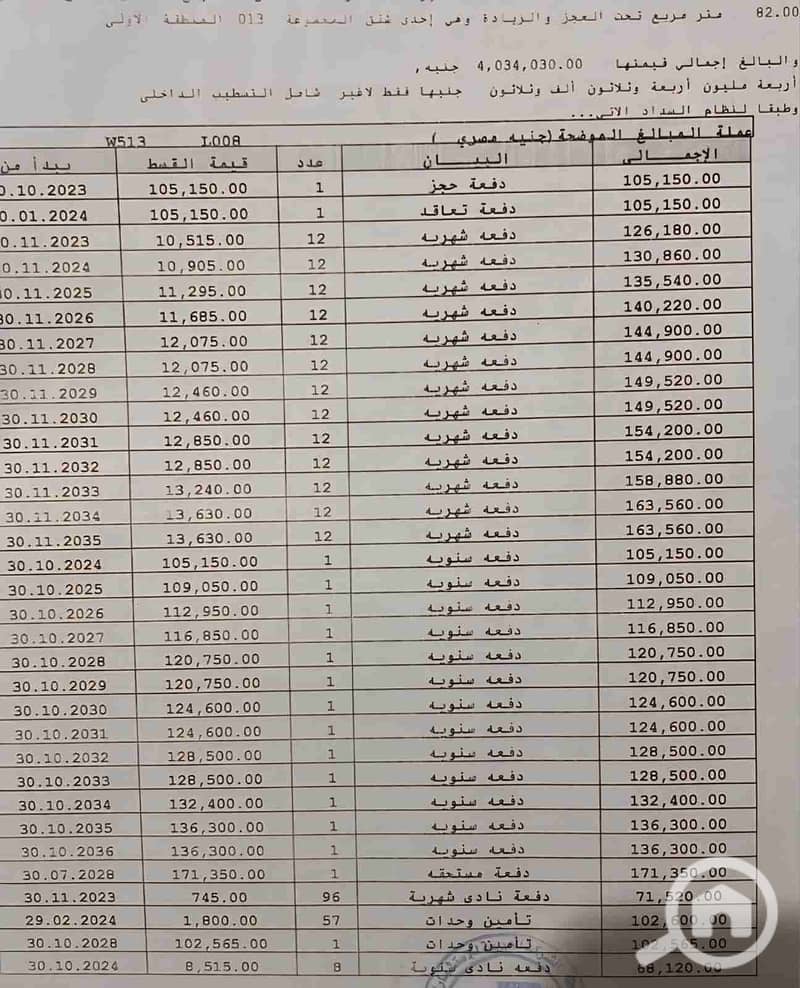 82.00 متر مربع تحت العجز والزيادة وهي إحدى شقق المجموعة 013 المنطقة الاولى
والبالغ إجمالي قيمتها 4,034,030.00 جنيه,
أربعة مليون أربعة وثلاثون ألف وثلاثون جنيها فقط لاغير شامل التشطيب الداخلى
وطبقا لنظام السداد الاتي...
عملة المبالغ الموضحة (جنيه مصري ) L008 W513
الإجمـــالى البيـــان عدد قيمة القسط يبدأ من
105,150.00 دفعة حجز 1 105,150.00 0.10.2023
105,150.00 دفعة تعاقد 1 105,150.00 0.01.2024
126,180.00 دفعه شهريه 12 10,515.00 0.11.2023
130,860.00 دفعه شهريه 12 10,905.00 0.11.2024
135,540.00 دفعه شهريه 12 11,295.00 0.11.2025
140,220.00 دفعه شهريه 12 11,685.00 30.11.2026
144,900.00 دفعه شهريه 12 12,075.00 30.11.2027
144,900.00 دفعه شهريه 12 12,075.00 30.11.2028
149,520.00 دفعه شهريه 12 12,460.00 30.11.2029
149,520.00 دفعه شهريه 12 12,460.00 30.11.2030
154,200.00 دفعه شهريه 12 12,850.00 30.11.2031
154,200.00 دفعه شهريه 12 12,850.00 30.11.2032
158,880.00 دفعه شهريه 12 13,240.00 30.11.2033
163,560.00 دفعه شهريه 12 13,630.00 30.11.2034
163,560.00 دفعه شهريه 12 13,630.00 30.11.2035
105,150.00 دفعه سنويه 1 105,150.00 30.10.2024
109,050.00 دفعه سنويه 1 109,050.00 30.10.2025
112,950.00 دفعه سنويه 1 112,950.00 30.10.2026
116,850.00 دفعه سنويه 1 116,850.00 30.10.2027
120,750.00 دفعه سنويه 1 120,750.00 30.10.2028
120,750.00 دفعه سنويه 1 120,750.00 30.10.2029
124,600.00 دفعه سنويه 1 124,600.00 30.10.2030
124,600.00 دفعه سنويه 1 124,600.00 30.10.2031
128,500.00 دفعه سنويه 1 128,500.00 30.10.2032
128,500.00 دفعه سنويه 1 128,500.00 30.10.2033
132,400.00 دفعه سنويه 1 132,400.00 30.10.2034
136,300.00 دفعه سنويه 1 136,300.00 30.10.2035
136,300.00 دفعه سنويه 1 136,300.00 30.10.2036
171,350.00 دفعة مستحقه 1 171,350.00 30.07.2028
71,520.00 دفعة نادى شهرية 96 745.00 30.11.2023
102,600.00 تأمين وحدات 57 1,800.00 29.02.2024
102,565.00 تأمين وحدات 1 102,565.00 30.10.2028
68,120.00 دفعه نادى سنوية 8 8,515.00 30.10.2024